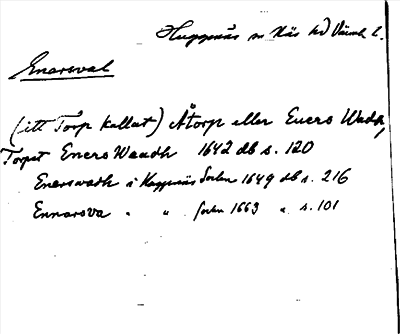 Huggenäs sn Näs hd Värml l.
Enarsval
(itt Torp kallat) Åtorp eller Eners Wadh,
Torpet Eners Waadh 1642 db s. 120
Enerswadh i Huggenäs Sochn 1649 db s. 216
Ennarsva " " sochn 1663 " s. 101